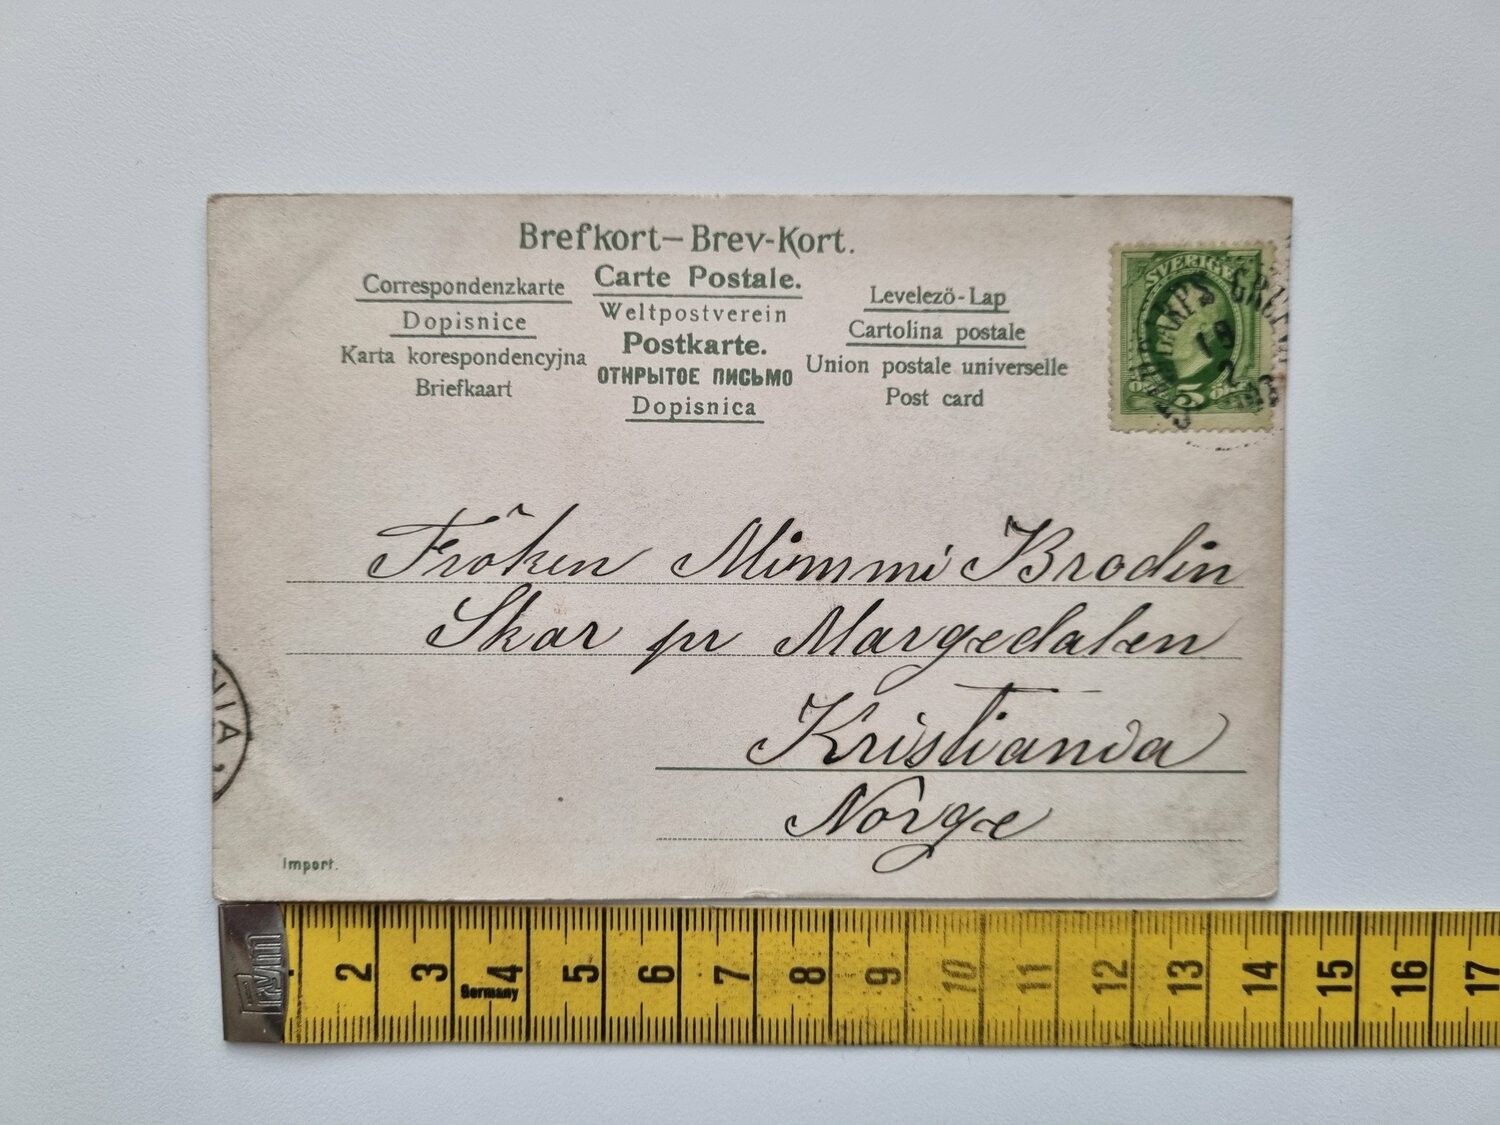 Brefkort–Brev-Kort.
Carte Postale.
Weltpostverein
Postkarte.
ОТКРЫТОЕ ПИСЬМО
Dopisnica
Correspondenzkarte
Dopisnice
Karta korespondencyjna
Briefkaart
Levelező-Lap
Cartolina postale
Union postale universelle
Post card
SVERIGE
5
18
2
Fröken Mimmi Brodin
Skar pr Margedalen
Kristiania
Norge
NIA
Import.
2 3 4 5 6 7 8 9 10 11 12 13 14 15 16 17
Germany